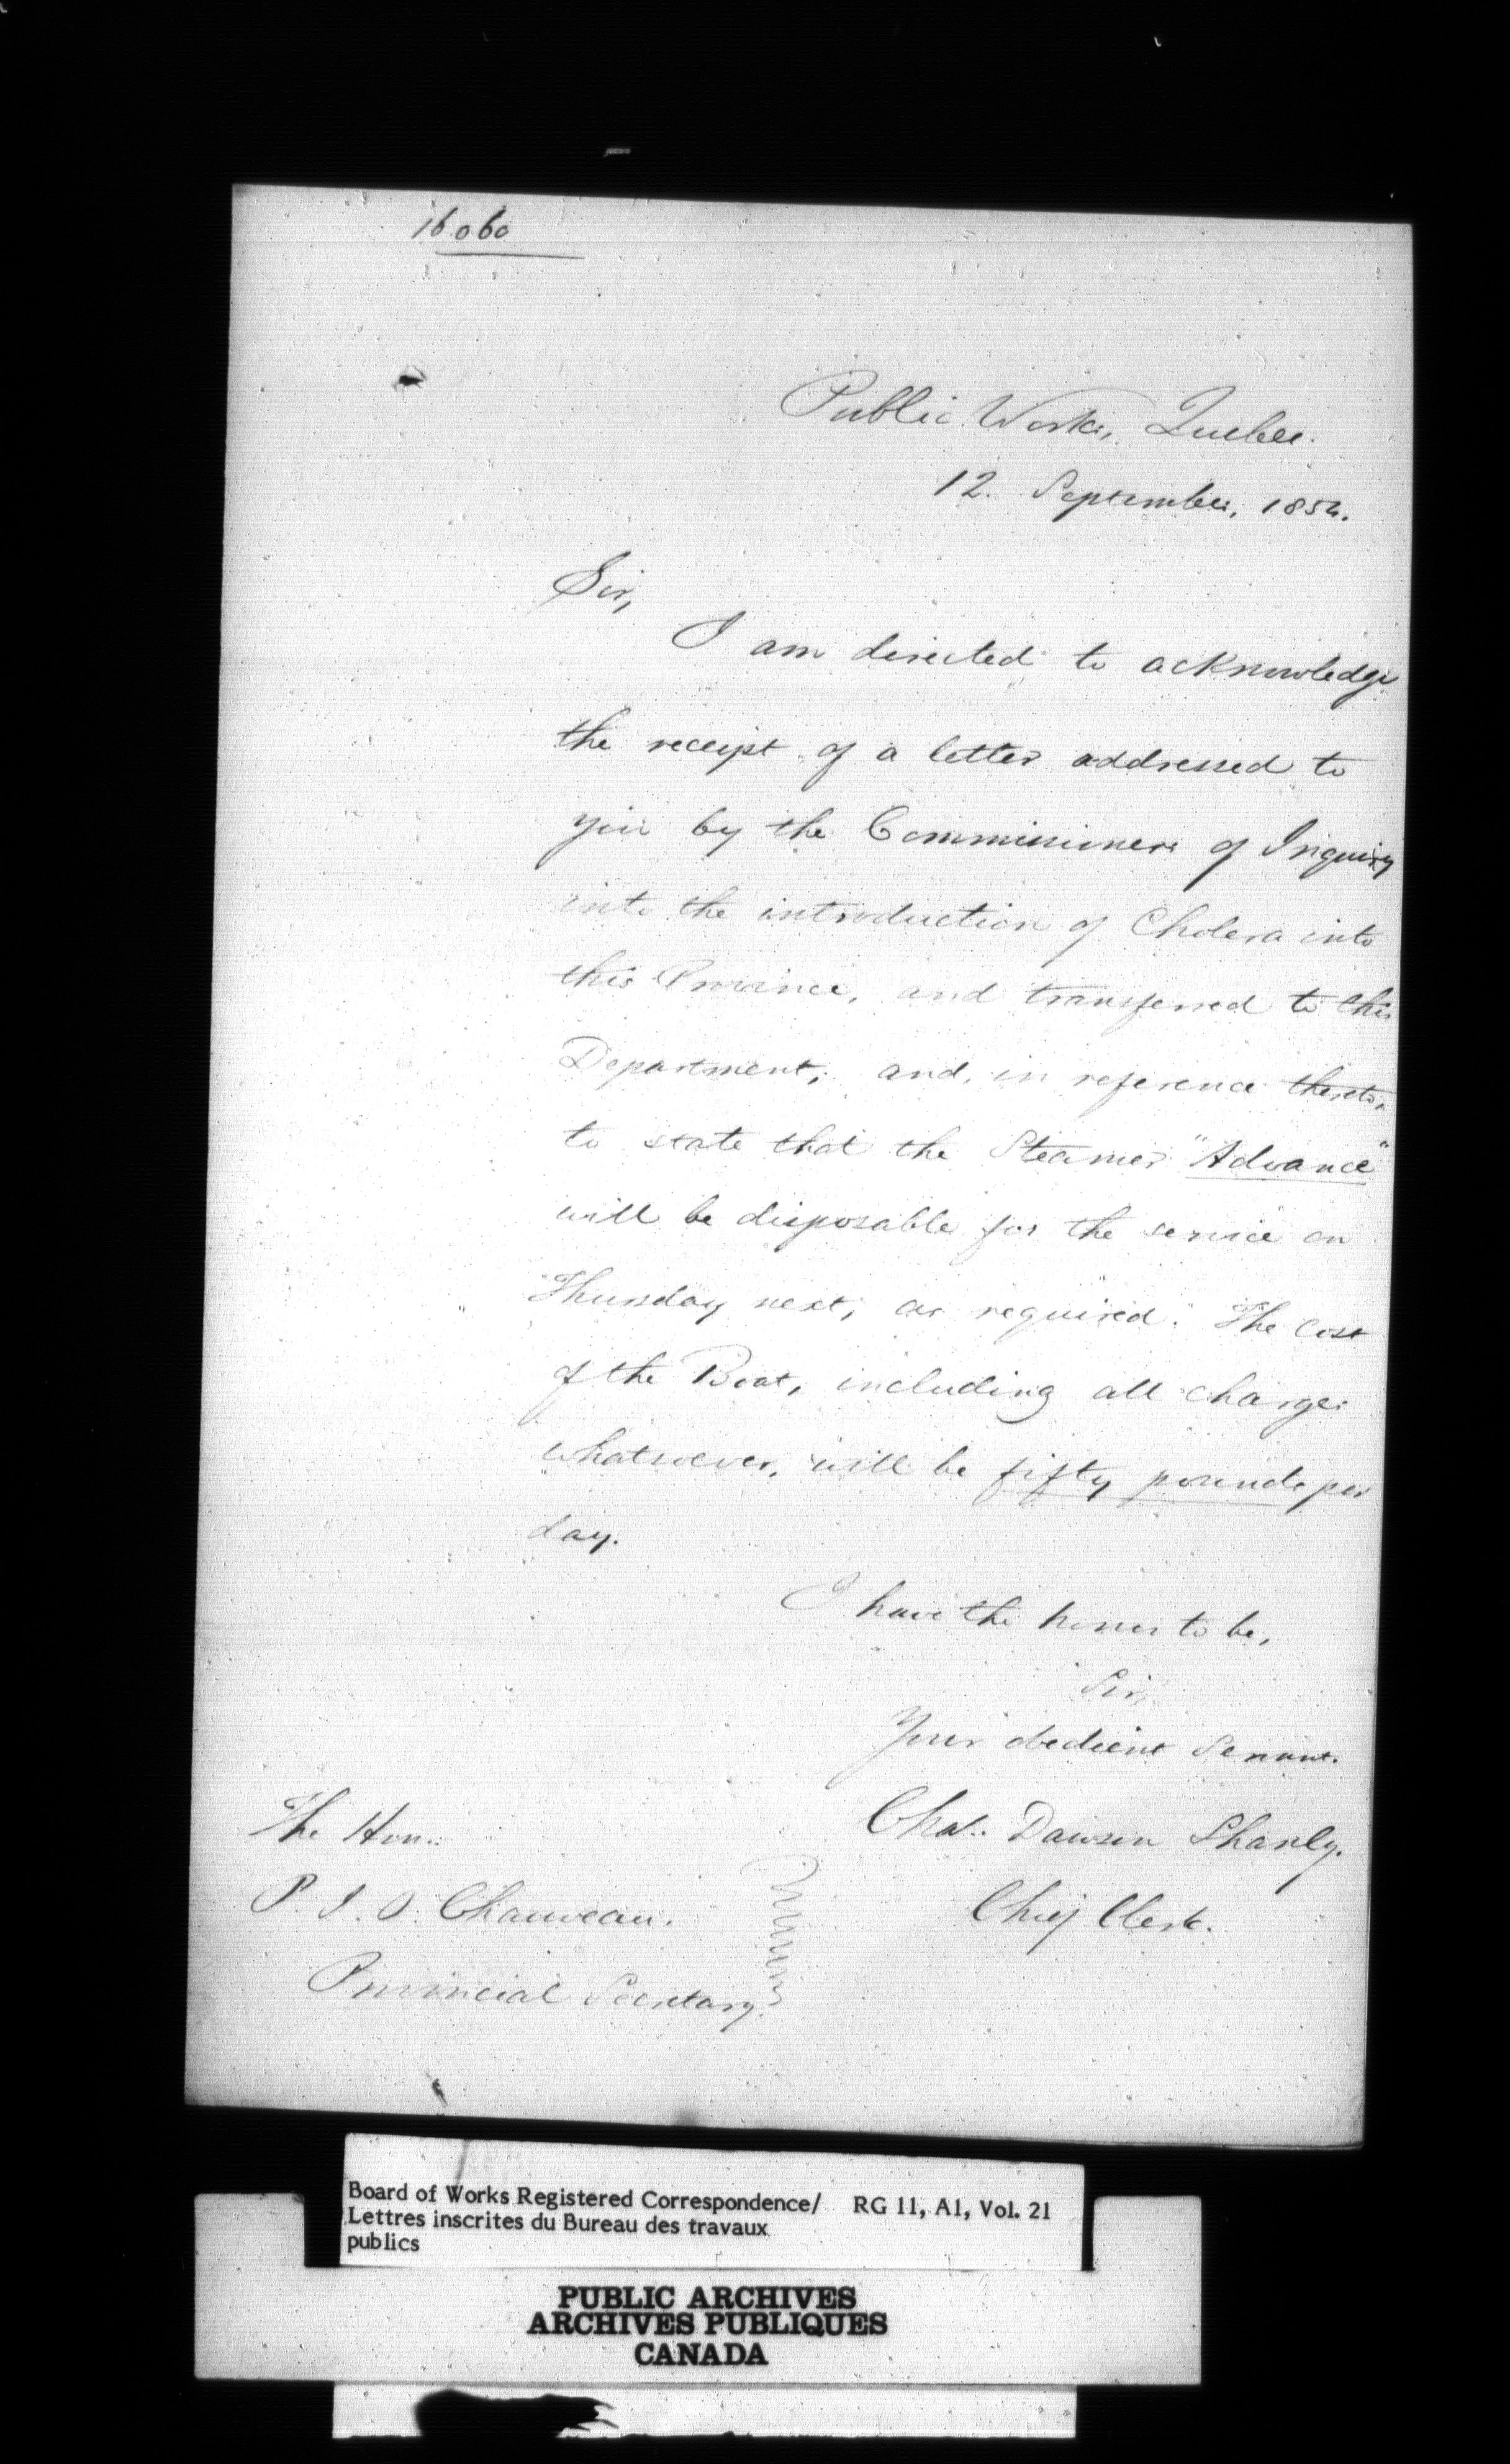 16060
Public Works, Quebec.
12. September, 1854.
Sir,
I am directed to acknowledge
the receipt of a letter addressed to
you by the Commissioners of Inquiry
into the introduction of Cholera into
this Province, and transferred to this
Department; and, in reference thereto,
to state that the Steamer "Advance"
will be disposable for the service on
Thursday next, as required. The Cost
of the Boat, including all charges
whatsoever, will be fifty pounds per
day.
I have the honor to be,
Sir,
Your obedient Servant.
Chas. Dawson Shanly.
Chief Clerk.
The Hon:
P. J. O. Chauveau.
Provincial Secretary.
Board of Works Registered Correspondence/ RG 11, A1, Vol. 21
Lettres inscrites du Bureau des travaux
publics
PUBLIC ARCHIVES
ARCHIVES PUBLIQUES
CANADA